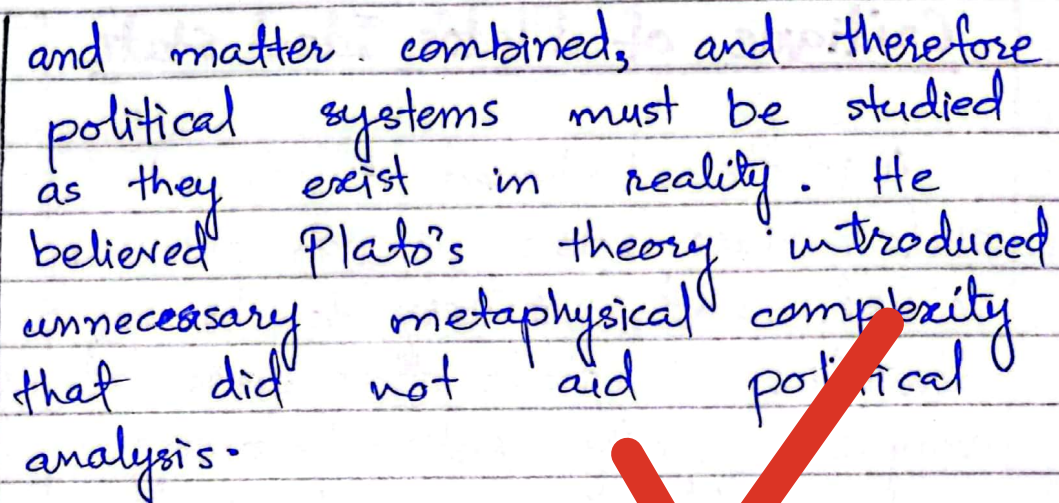 and matter combined, and therefore
political systems must be studied
as they exist in reality. He
believed Plato's theory introduced
unnecessary metaphysical complexity
that did not aid political
analysis.